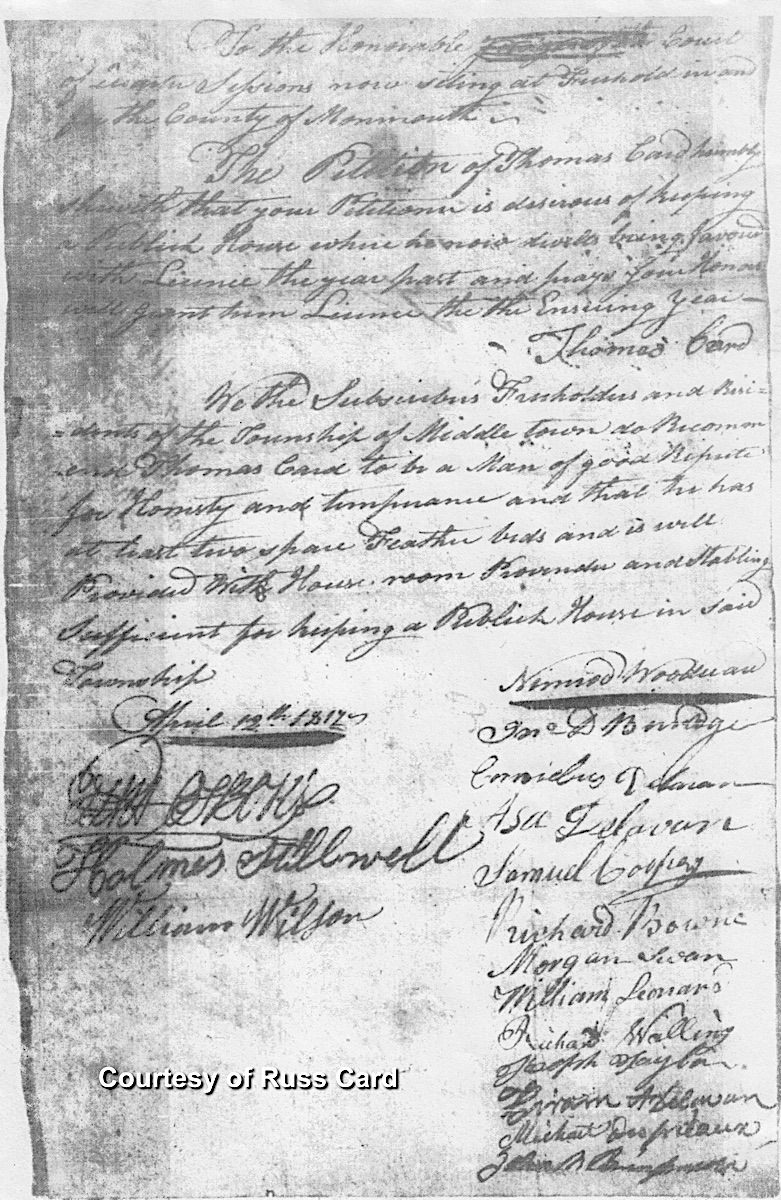 To the Honorable Court
of Quarter Sessions now siting at Freehold in and
for the County of Monmouth
The Petition of Thomas Card humbly
sheweth that your Petitioner is desirous of keeping
a Publick House where he now dwells being favourd
with Licence the year past and prays your Honors
will grant him Licence the the Ensuing Year
Thomas Card
We the Subscribers Freholders and Resi-
-dents of the Township of Middletown do Recomm
-end Thomas Card to be a Man of good Repute
for Honesty and temperance and that he has
at least two spare Feather beds and is well
Provided With House room Provender and Stabling
Sufficient for keeping a Publick House in said
Township
April 12th 1817
Holmes Stillwell
William Wilson
Nimrod Woodward
Jno D
Cornelius
Asa Delavan
Samuel Cooper
Richard Bowne
Morgan Swan
William Leonard
Richard Walling
Joseph Taylor
Hiram
Michael
John
Courtesy of Russ Card